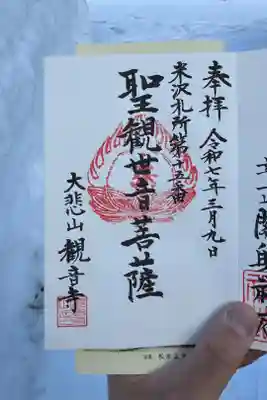 奉拝
令和七年三月九日
米沢札所第十五番
聖観世音菩薩
大悲山観音寺